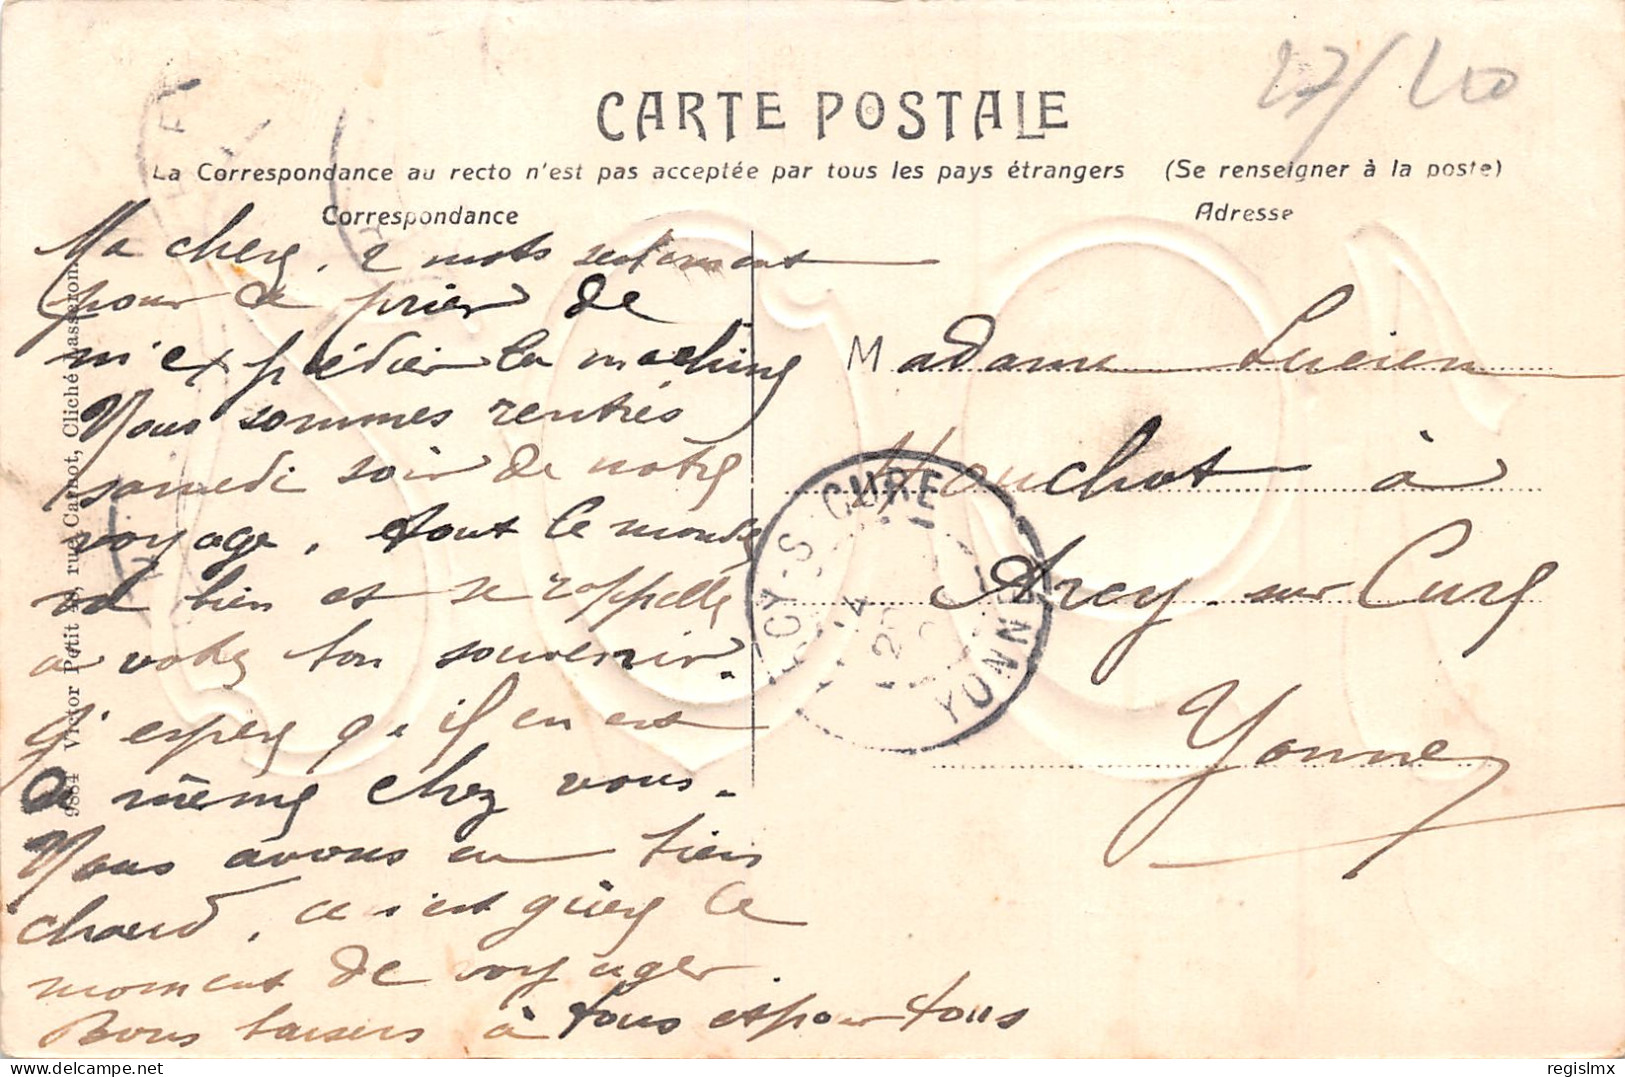 27/
CARTE POSTALE
La Correspondance au recto n'est pas acceptée par tous les pays étrangers (Se renseigner à la poste)
Correspondance
Adresse
Ma chere, 2 mots seulement
pour te prier de
m'expédier la machine
Nous sommes rentrés
samedi soir de notre
voyage, tout le monde
va bien et se rappelle
a votre bon souvenir.
J'espere qu'il en est
de même chez vous.
Nous avons eu bien
chaud, ce n'est guère le
moment de voyager.
Bons baisers à tous et pour tous
Madame Lucien
Houchot à
Arcy-sur-Cure
Yonne
ARCY-S-CURE
YONNE
9884 Victor Petit rue Carnot, Cliché Lasseron.
regislmx